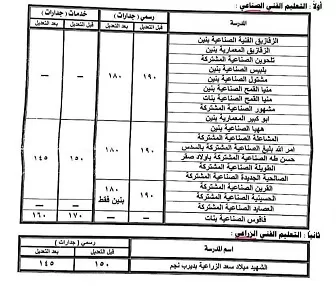 أولاً : التعليم الفني الصناعي :
المدرسة رسمي ( جدارات ) خدمات ( جدارات )
قبل التعديل بعد التعديل قبل التعديل بعد التعديل
الزقازيق الفنية الصناعية بنين
الزقازيق المعمارية بنين
تلحوين الصناعية المشتركة
بلبيس الصناعية بنين
مشتول الصناعية بنين
منيا القمح الصناعية بنين
منيا القمح الصناعية بنات
مشهور الصناعية المشتركة
ابو كبير المعمارية بنين
١٩٠ ١٨٠ — —
ههيا الصناعية بنين
المشاعلة الصناعية المشتركة
امر الله بليغ الصناعية المشتركة بالسدس
حسن طه الصناعية المشتركة باولاد صقر
الطويلة الصناعية المشتركة
الصالحية الجديدة الصناعية المشتركة
١٩٠ ١٨٠ ١٥٠ ١٤٥
القرين الصناعية المشتركة
الحسينية الصناعية المشتركة
١٩٠ ١٨٠ بنين فقط
العصايد الصناعية المشتركة — —
فاقوس الصناعية بنات — — ١٧٠ ١٦٠
ثانياً : التعليم الفني الزراعي :
اسم المدرسة رسمي ( جدارات )
قبل التعديل بعد التعديل
الشهيد ميلاد سعد الزراعية بديرب نجم ١٥٠ ١٤٥